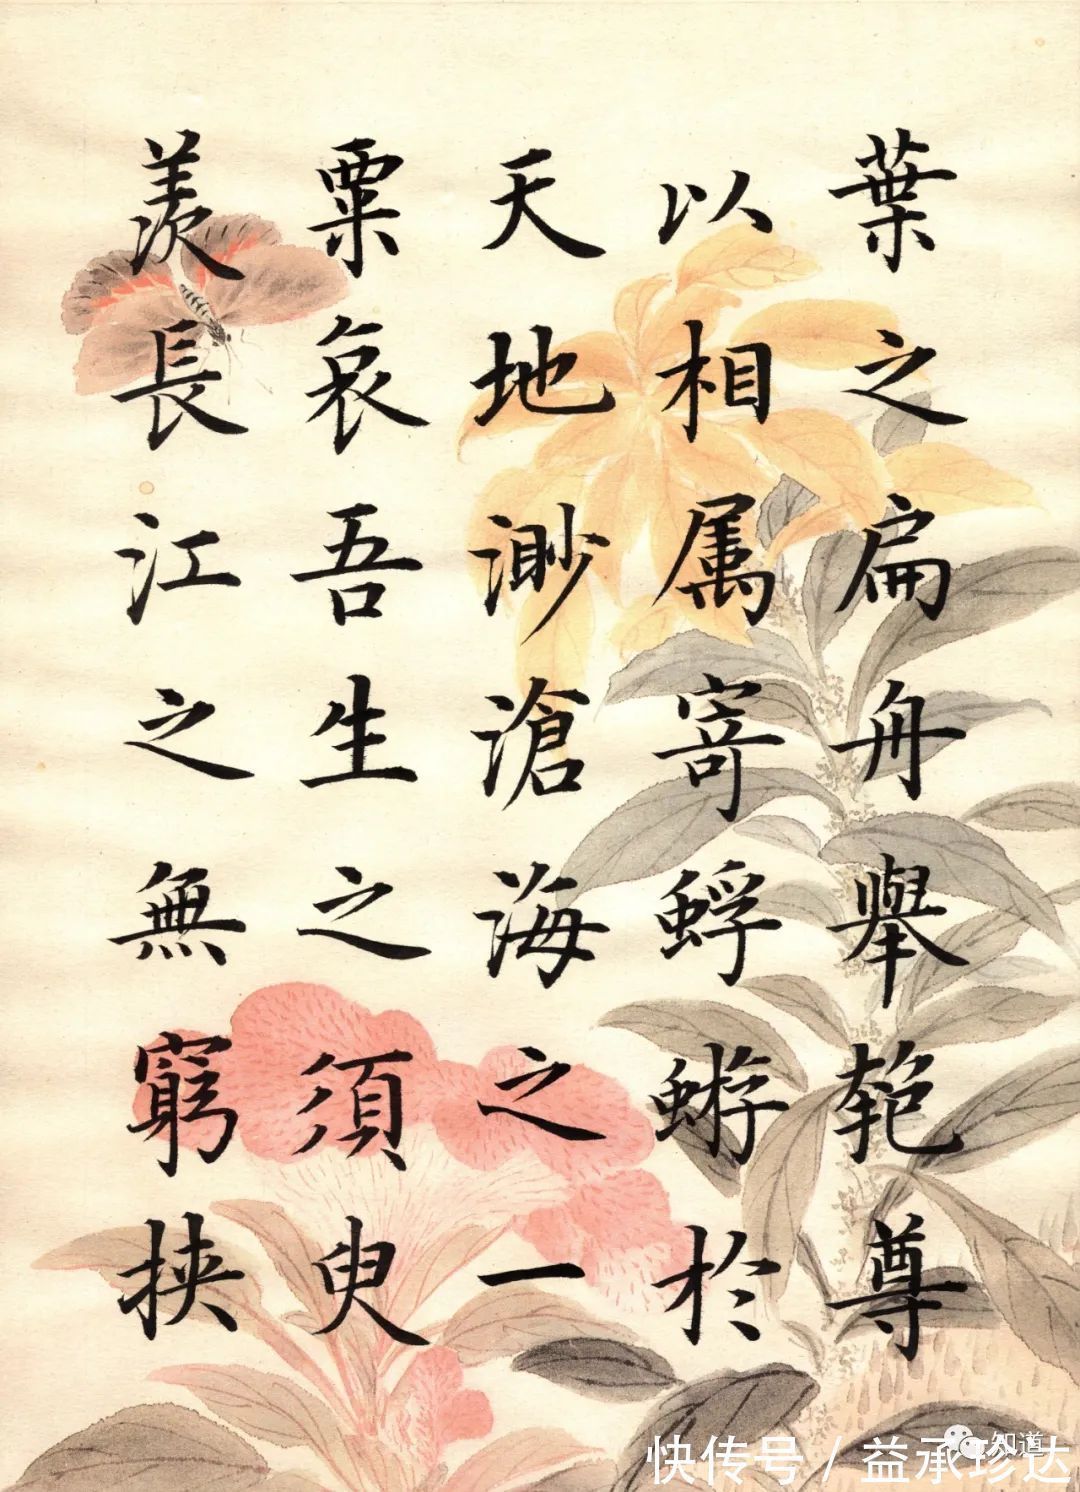 葉之扁舟舉匏尊
以相属寄蜉蝣於
天地渺滄海之一
粟哀吾生之須臾
羨長江之無窮挟
知道
快传号 / 益承珍达